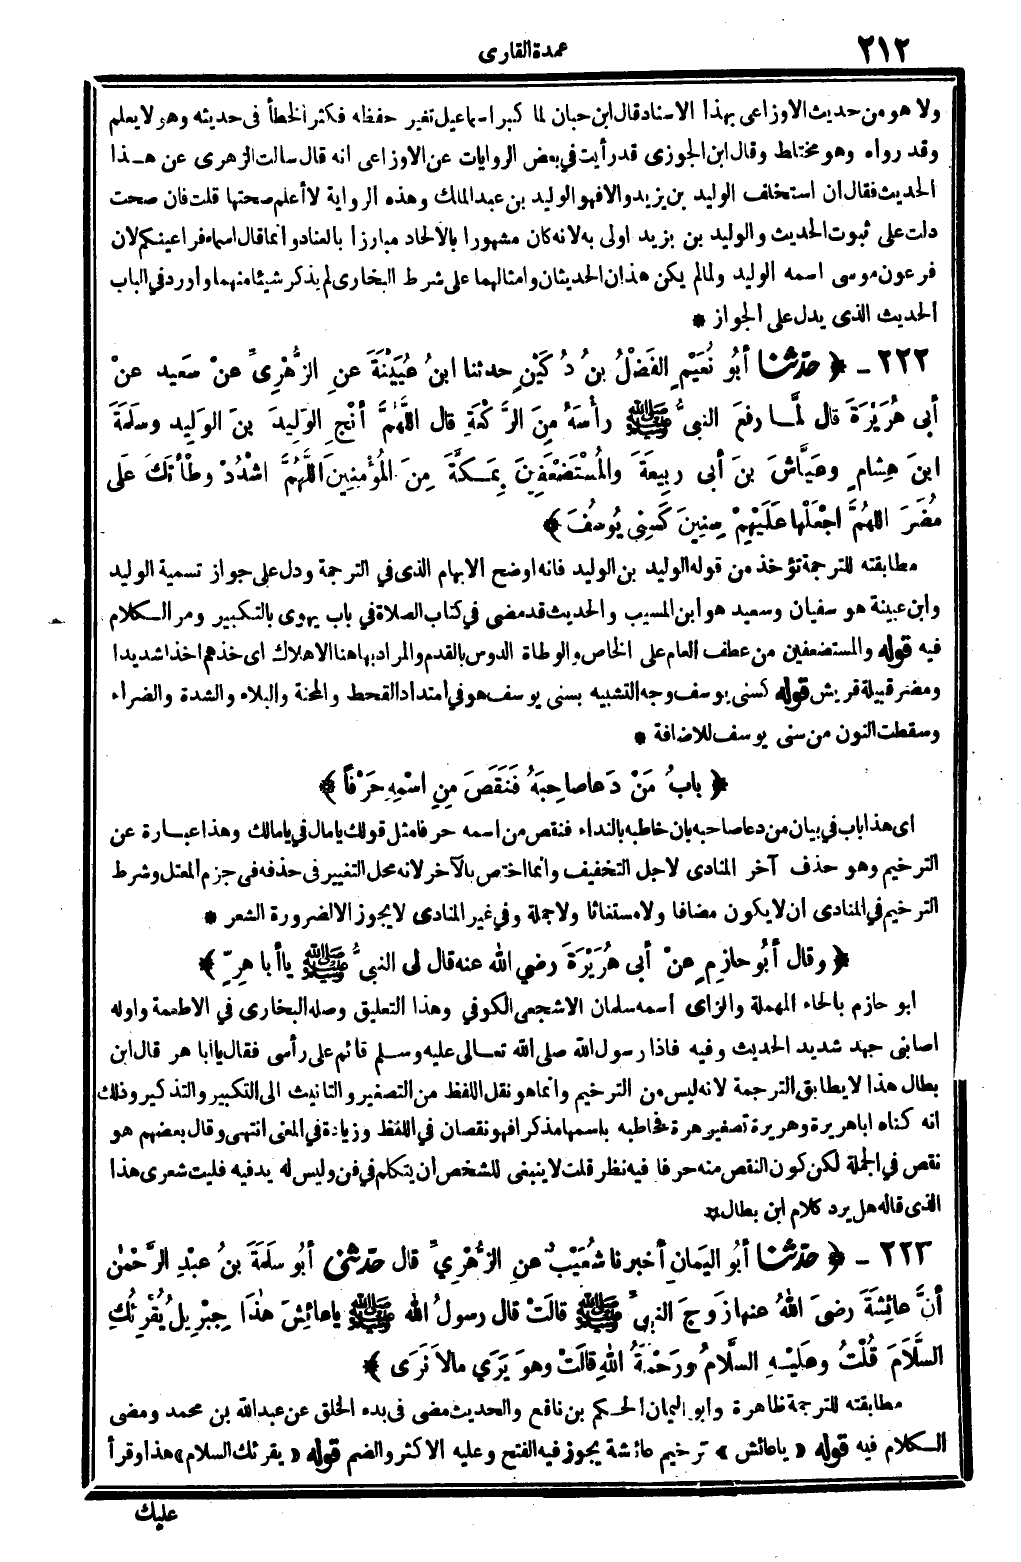 ٢١٢
عمدة القارى
ولا هو من حديث الاوزاعى بهذا الاسناد قال ابن حبان لما كبر اسماعيل تغير حفظه فكثر الخطأ فى حديثه وهو لا يعلم
وقد رواه وهو مختلط وقال ابن الجوزى قد رأيت في بعض الروايات عن الاوزاعى انه قال سالت الزهرى عن هذا
الحديث فقال ان استخلف الوليد بن يزيد والا فهو الوليد بن عبد الملك وهذه الرواية لا أعلم صحتها قلت فان صحت
دلت على ثبوت الحديث والوليد بن يزيد اولى به لانه كان مشهورا بالالحاد مبارزا بالعناد وانما قال اسماء فراعينكم لان
فرعون موسى اسمه الوليد ولما لم يكن هذان الحديثان وامثالهما على شرط البخارى لم يذكر شيئا منهما واورد في الباب
الحديث الذى يدل على الجواز *
٢٢٢ - ﴿ حدّثنا أبُو نُعَيْمٍ الفَضْلُ بنُ دُكَيْنٍ حدثنا ابنُ عُيَيْنَةَ عنِ الزُّهْرِىِّ عنْ سَعِيد عنْ
أبى هُرَيْرَةَ قال لمَّا رفعَ النبىُّ ﷺ رأْسَهُ مِنَ الرَّكْعَةِ قال اللّٰهُمَّ أنْجِ الوَلِيدَ بنَ الوَلِيدِ وسَلَمَةَ
ابنَ هِشامٍ وعَيَّاشَ بنَ أبى رِبِيعَةَ والمُسْتَضْعَفِينَ بِمَكَّةَ مِنَ المُؤْمِنِينَ اللّٰهُمَّ اشْدُدْ وطْأَتَكَ عَلَى
مُضَرَ اللهُمَّ اجْعَلْها عَلَيْهِمْ سِنِينَ كَسِنِى يُوسُفَ ﴾
مطابقته للترجمة تؤخذ من قوله الوليد بن الوليد فانه اوضح الابهام الذى في الترجمة ودل على جواز تسمية الوليد
وابن عيينة هو سفيان وسعيد هو ابن المسيب والحديث قد مضى في كتاب الصلاة في باب يهوى بالتكبير ومر الكلام
فيه قوله والمستضعفين من عطف العام على الخاص والوطاة الدوس بالقدم والمراد بها هنا الاهلاك اى خذهم اخذا شديدا
ومضر قبيلة قريش قوله كسنى يوسف وجه التشبيه بسنى يوسف هو في امتداد القحط والمحنة والبلاء والشدة والضراء
وسقطت النون من سنى يوسف للاضافة *
﴿ بابُ مَنْ دَعا صاحِبَهُ فَنَقَصَ مِنِ اسْمِهِ حَرْفاً ﴾
اى هذا باب في بيان من دعا صاحبه بان خاطبه بالنداء فنقص من اسمه حرفا مثل قولك يامال في يامالك وهذا عبارة عن
الترخيم وهو حذف آخر المنادى لاجل التخفيف وانما اختص بالآخر لانه محل التغيير فى حذفه فى جزم المعتل وشرط
الترخيم في المنادى ان لا يكون مضافا ولا مستغاثا ولا جملة وفي غير المنادى لا يجوز الا لضرورة الشعر *
﴿ وقال أبُو حازِمٍ عنْ أبى هُرَيْرَةَ رضي الله عنه قال لى النبىُّ ﷺ ياأبا هِرٍّ ﴾
ابو حازم بالحاء المهملة والزاى اسمه سلمان الاشجعى الكوفي وهذا التعليق وصله البخارى في الاطعمة واوله
اصابنى جهد شديد الحديث وفيه فاذا رسول الله صلى الله تعالى عليه وسلم قائم على رأسى فقال يا ابا هر قال ابن
بطال هذا لا يطابق الترجمة لانه ليس من الترخيم وانما هو نقل اللفظ من التصغير والتانيث الى التكبير والتذكير وذلك
انه كناه اباهريرة وهريرة تصغير هرة فخاطبه باسمها مذكرا فهو نقصان في اللفظ وزيادة في المعنى انتهى وقال بعضهم هو
نقص في الجملة لكن كون النقص منه حرفا فيه نظر قلت لا ينبغى للشخص أن يتكلم في فن وليس له يد فيه فليت شعرى هذا
الذى قاله هل يرد كلام ابن بطال *
٢٢٣ - ﴿ حدّثنا أبُو اليَمانِ أخبرنا شُعَيْبٌ عنِ الزُّهْرِيِّ قال حدّثنى أبُو سَلَمَةَ بنُ عبْدِ الرَّحْمٰنِ
أنَّ عائِشَةَ رضىَ اللهُ عنها زَوجَ النبىِّ ﷺ قالَتْ قال رسولُ الله ﷺ ياعائِشَ هٰذا جِبْرِيلُ يُقْرِئُكِ
السَّلاَمَ قُلْتُ وعَلَيْهِ السَّلاَمُ ورَحْمَةُ اللهِ قالَتْ وهو يَرَي مالاَ نَرَى ﴾
مطابقته للترجمة ظاهرة وابو اليمان الحكم بن نافع والحديث مضى فى بدء الخلق عن عبد الله بن محمد ومضى
الكلام فيه قوله «ياعائش» ترخيم عائشة يجوز فيه الفتح وعليه الاكثر والضم قوله «يقرئك السلام» هذا وقرأ
عليك